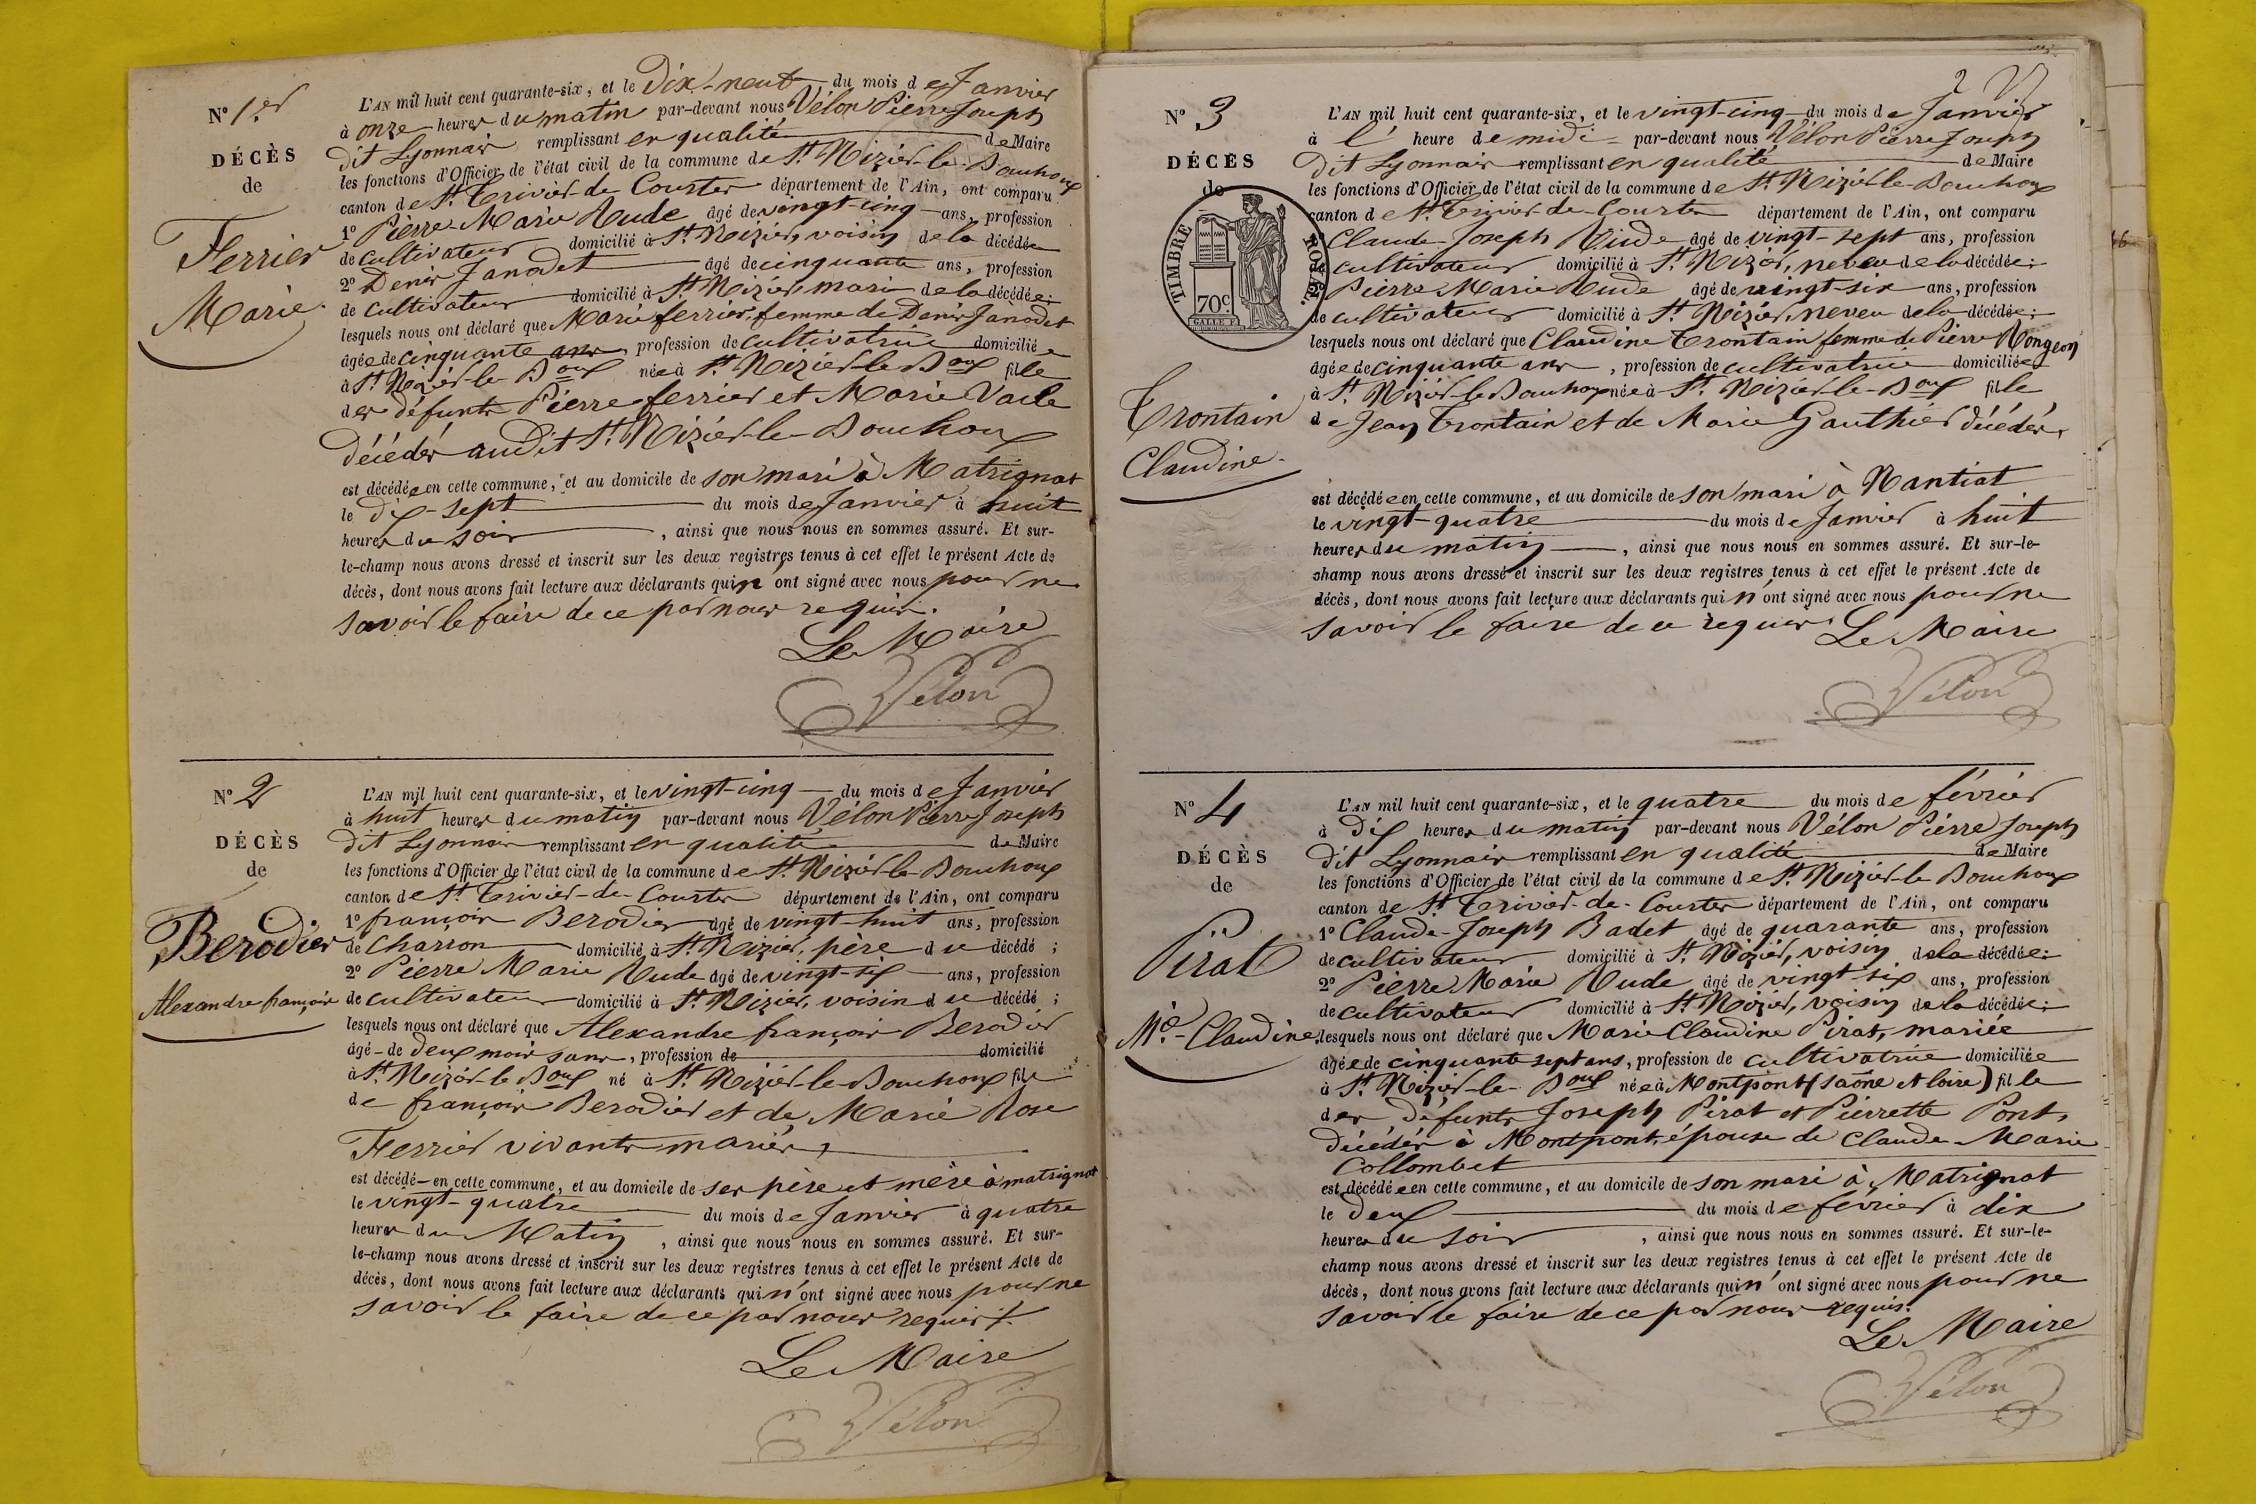 N° 1er
DÉCÈS
de
Ferrier
Marie
L'AN mil huit cent quarante-six, et le Dix-neuf du mois de Janvier
à onze heures du matin par-devant nous Vélon Pierre Joseph
dit Lyonnais remplissant en qualité de Maire
les fonctions d'Officier de l'état civil de la commune de St. Nizier-le-Bouhoux
canton de St. Trivier-de-Courtes département de l'Ain, ont comparu
1° Pierre Marie Rude âgé de vingt-cinq ans, profession
de cultivateur domicilié à St. Nizier, voisin de la décédée
2° Denis Janodet âgé de cinquante ans, profession
de cultivateur domicilié à St. Nizier, mari de la décédée;
lesquels nous ont déclaré que Marie ferrier, femme de Denis Janodet
âgée de cinquante ans, profession de cultivatrice domiciliée
à St. Nizier-le-Boux née à St. Nizier-le-Boux fille
des défunts Pierre ferrier et Marie Vacle
décédés audit St. Nizier-le-Bouhoux
est décédée en cette commune, et au domicile de son mari à Matrignat
le dix-sept du mois de Janvier à huit
heures du soir, ainsi que nous nous en sommes assuré. Et sur-
le-champ nous avons dressé et inscrit sur les deux registres tenus à cet effet le présent Acte de
décès, dont nous avons fait lecture aux déclarants qui n'ont signé avec nous pour ne
savoir le faire de ce par nous requis.
Le Maire
Vélon
N° 2
DÉCÈS
de
Berodier
Alexandre françois
L'AN mil huit cent quarante-six, et le vingt-cinq du mois de Janvier
à huit heures du matin par-devant nous Vélon Pierre Joseph
dit Lyonnais remplissant en qualité de Maire
les fonctions d'Officier de l'état civil de la commune de St. Nizier-le-Bouhoux
canton de St. Trivier-de-Courtes département de l'Ain, ont comparu
1° françois Berodier âgé de vingt-huit ans, profession
de charron domicilié à St. Nizier, père du décédé;
2° Pierre Marie Rude âgé de vingt-six ans, profession
de cultivateur domicilié à St. Nizier, voisin du décédé;
lesquels nous ont déclaré que Alexandre françois Berodier
âgé de deux mois sans, profession de domicilié
à St. Nizier-le-Boux né à St. Nizier-le-Bouhoux fils
de françois Berodier et de Marie Rose
Ferrier vivants mariés,
est décédé en cette commune, et au domicile de ses père et mère à matrignat
le vingt-quatre du mois de Janvier à quatre
heures du Matin, ainsi que nous nous en sommes assuré. Et sur-
le-champ nous avons dressé et inscrit sur les deux registres tenus à cet effet le présent Acte de
décès, dont nous avons fait lecture aux déclarants qui n'ont signé avec nous pour ne
savoir le faire de ce par nous requis.
Le Maire
Vélon
2
N° 3
DÉCÈS
de
TIMBRE ROYAL
70c
Trontain
Claudine
L'AN mil huit cent quarante-six, et le vingt-cinq du mois de Janvier
à l' heure de midi par-devant nous Vélon Pierre Joseph
dit Lyonnais remplissant en qualité de Maire
les fonctions d'Officier de l'état civil de la commune de St. Nizier-le-Bouhoux
canton de St. Trivier-de-Courtes département de l'Ain, ont comparu
Claude-Joseph Rude âgé de vingt-sept ans, profession
de cultivateur domicilié à St. Nizier, neveu de la décédée;
Pierre Marie Rude âgé de vingt-six ans, profession
de cultivateur domicilié à St. Nizier, neveu de la décédée;
lesquels nous ont déclaré que Claudine Trontain femme de Pierre Mongeon
âgée de cinquante ans, profession de cultivatrice domiciliée
à St. Nizier-le-Bouhoux née à St. Nizier-le-Boux fille
de Jean Trontain et de Marie Gauthier décédés,
est décédée en cette commune, et au domicile de son mari à Nantiat
le vingt-quatre du mois de Janvier à huit
heures du matin, ainsi que nous nous en sommes assuré. Et sur-le-
champ nous avons dressé et inscrit sur les deux registres tenus à cet effet le présent Acte de
décès, dont nous avons fait lecture aux déclarants qui n'ont signé avec nous pour ne
savoir le faire de ce requis. Le Maire
Vélon
N° 4
DÉCÈS
de
Pirat
Mie-Claudine
L'AN mil huit cent quarante-six, et le quatre du mois de février
à dix heures du matin par-devant nous Vélon Pierre Joseph
dit Lyonnais remplissant en qualité de Maire
les fonctions d'Officier de l'état civil de la commune de St. Nizier-le-Bouhoux
canton de St. Trivier-de-Courtes département de l'Ain, ont comparu
1° Claude-Joseph Badet âgé de quarante ans, profession
de cultivateur domicilié à St. Nizier, voisin de la décédée;
2° Pierre Marie Rude âgé de vingt six ans, profession
de cultivateur domicilié à St. Nizier, voisin de la décédée;
lesquels nous ont déclaré que Marie Claudine Pirat, mariée
âgée de cinquante sept ans, profession de cultivatrice domiciliée
à St. Nizier-le-Boux née à Montpont (saône et loire) fille
des défunts Joseph Pirat et Pierrette Pont,
décédés à Montpont, épouse de Claude-Marie
Collombet
est décédée en cette commune, et au domicile de son mari à Matrignat
le deux du mois de février à dix
heures du soir, ainsi que nous nous en sommes assuré. Et sur-le-
champ nous avons dressé et inscrit sur les deux registres tenus à cet effet le présent Acte de
décès, dont nous avons fait lecture aux déclarants qui n'ont signé avec nous pour ne
savoir le faire de ce par nous requis.
Le Maire
Vélon